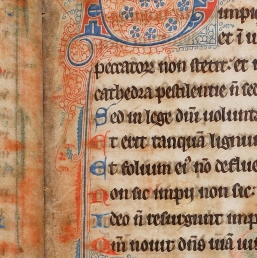 impio
et i u
peccatorū non stetit. et i
cathedra pestilentie n̄ sed
Sed in lege dn̄i volunta
Et erit tanquā lignum
Et folium ei' nō deflue
Non sic impii non sic:
Ideo n̄ resurgunt imp
Qm̄ nouit dn̄s uiā ius